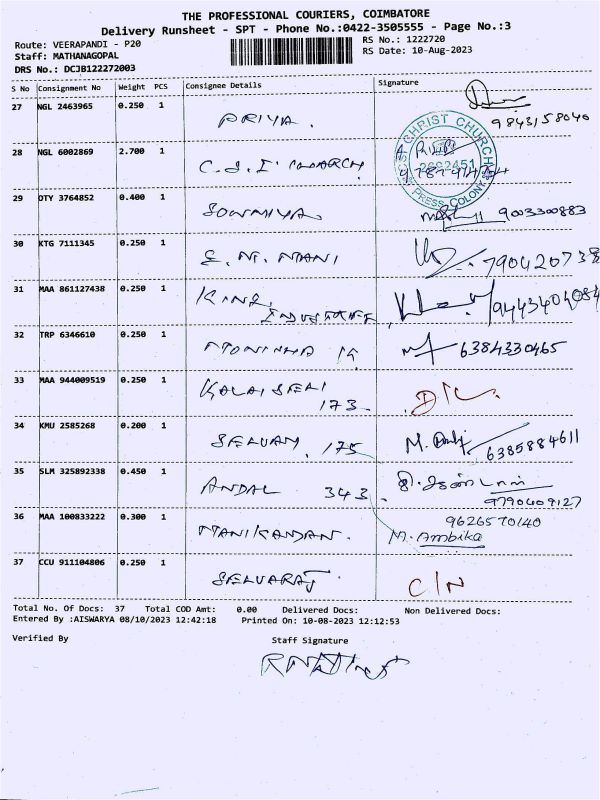 THE PROFESSIONAL COURIERS, COIMBATORE
Delivery Runsheet - SPT - Phone No.:0422-3505555 - Page No.:3
Route: VEERAPANDI - P20
RS No.: 1222720
Staff: MATHANAGOPAL
RS Date: 10-Aug-2023
DRS No.: DCJB122272003
S No Consignment No Weight PCS Consignee Details Signature
27 NGL 2463965 0.250 1 PRIYA. 9843158040
28 NGL 6002869 2.700 1 C.S.I. CHURCH
CHRIST CHURCH
2692451
PRESS COLONY
29 OTY 3764852 0.400 1 SOWMIYA 9003300883
30 KTG 7111345 0.250 1 MANI 790420738
31 MAA 861127438 0.250 1 KING 9443404084
32 TRP 6346610 0.250 1 6384330465
33 MAA 944009519 0.250 1 KALAISELVI
173
34 KMU 2585268 0.200 1 SELVAM, 175 M. 6385884611
35 SLM 325892338 0.450 1 ANDAL 343
9790609127
36 MAA 100833222 0.300 1 MANIKANDAN. 9626570140
M. Ambika
37 CCU 911104806 0.250 1 SELVARAJ
Total No. Of Docs: 37 Total COD Amt: 0.00 Delivered Docs: Non Delivered Docs:
Entered By :AISWARYA 08/10/2023 12:42:18 Printed On: 10-08-2023 12:12:53
Verified By Staff Signature